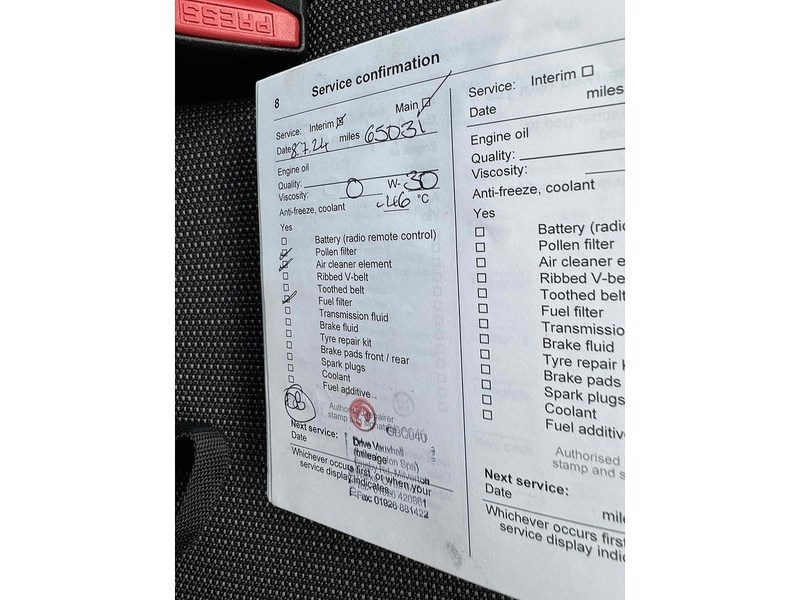 PRESS
8 Service confirmation
Service: Interim Main
Date 8.7.24 miles 65031
Engine oil
Quality:
Viscosity: 0 W- 30
Anti-freeze, coolant -46 °C
Yes
Battery (radio remote control)
Pollen filter
Air cleaner element
Ribbed V-belt
Toothed belt
Fuel filter
Transmission fluid
Brake fluid
Tyre repair kit
Brake pads front / rear
Spark plugs
Coolant
Fuel additive
stamp
GBC040
Next service:
Date
Drive Vauxhall
mileage
Whichever occurs first, or when your
service display indicates
Fax: 01926 881422
Service: Interim
Date miles
Engine oil
Quality:
Viscosity:
Anti-freeze, coolant
Yes
Battery (radio
Pollen filter
Air cleaner ele
Ribbed V-be
Toothed belt
Fuel filter
Transmissio
Brake fluid
Tyre repair k
Brake pads
Spark plugs
Coolant
Fuel additiv
Authorised
stamp and s
Next service:
Date mile
Whichever occurs first
service display indic